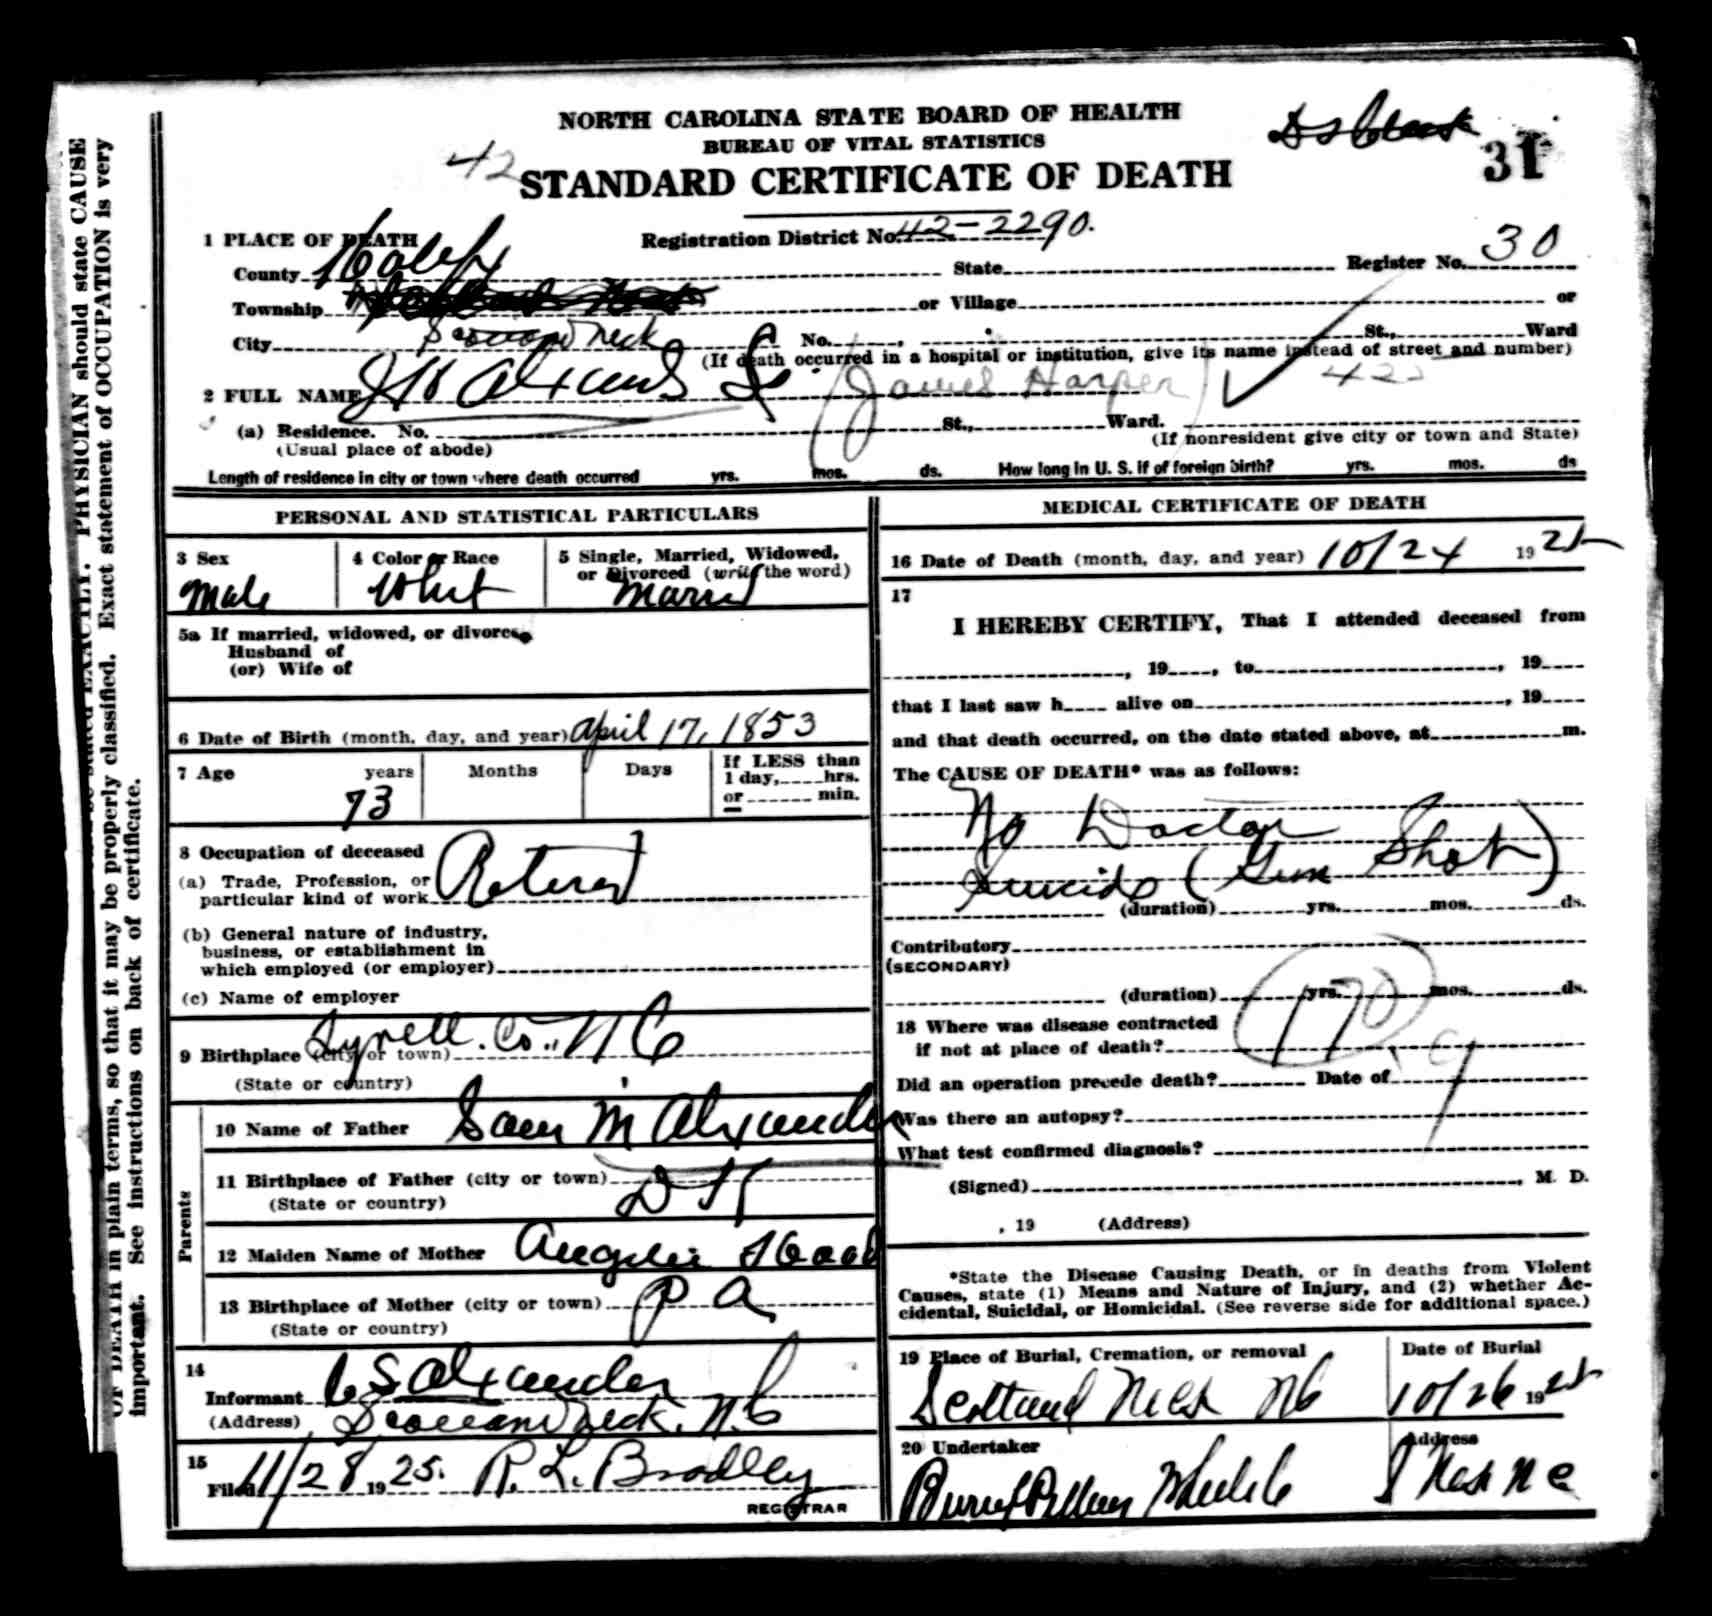 NORTH CAROLINA STATE BOARD OF HEALTH
BUREAU OF VITAL STATISTICS
31
42
STANDARD CERTIFICATE OF DEATH
1 PLACE OF DEATH Registration District No. 42-2290.
County Halifx State Register No. 30
Township or Village or
City Scotland Neck No. , St., Ward
(If death occurred in a hospital or institution, give its name instead of street and number)
2 FULL NAME (James Harper)
(a) Residence. No. St., Ward.
(Usual place of abode) (If nonresident give city or town and State)
Length of residence in city or town where death occurred yrs. mos. ds. How long in U. S. if of foreign birth? yrs. mos. ds
PERSONAL AND STATISTICAL PARTICULARS
3 Sex 4 Color or Race 5 Single, Married, Widowed,
or Divorced (write the word)
Male Whit Married
5a If married, widowed, or divorced
Husband of
(or) Wife of
6 Date of Birth (month, day, and year) April 17, 1853
7 Age years Months Days If LESS than
1 day, hrs.
or min.
73
8 Occupation of deceased
(a) Trade, Profession, or
particular kind of work Retired
(b) General nature of industry,
business, or establishment in
which employed (or employer)
(c) Name of employer
9 Birthplace (city or town) Tyrell. Co., N C
(State or country)
Parents
10 Name of Father Sam M Alexander
11 Birthplace of Father (city or town) D K
(State or country)
12 Maiden Name of Mother Angelie Hood
13 Birthplace of Mother (city or town) P A
(State or country)
14
Informant Alexander
(Address) Scotland Neck, N.C
15
Filed 11/28 1925. R. L. Bradley
REGISTRAR
MEDICAL CERTIFICATE OF DEATH
16 Date of Death (month, day, and year) 10/24 1925
17
I HEREBY CERTIFY, That I attended deceased from
, 19 , to , 19
that I last saw h alive on , 19
and that death occurred, on the date stated above, at m.
The CAUSE OF DEATH* was as follows:
No Doctor
Suicide (Gun Shot)
(duration) yrs. mos. ds.
Contributory
(SECONDARY)
(duration) yrs. mos. ds.
170
18 Where was disease contracted
if not at place of death?
Did an operation precede death? Date of
Was there an autopsy?
What test confirmed diagnosis?
(Signed) , M. D.
, 19 (Address)
*State the Disease Causing Death, or in deaths from Violent
Causes, state (1) Means and Nature of Injury, and (2) whether Ac-
cidental, Suicidal, or Homicidal. (See reverse side for additional space.)
19 Place of Burial, Cremation, or removal Date of Burial
Scotland Neck NC 10/26 1925
20 Undertaker Address
S Neck N C
PHYSICIAN should state CAUSE
OF DEATH in plain terms, so that it may be properly classified. Exact statement of OCCUPATION is very
important. See instructions on back of certificate.